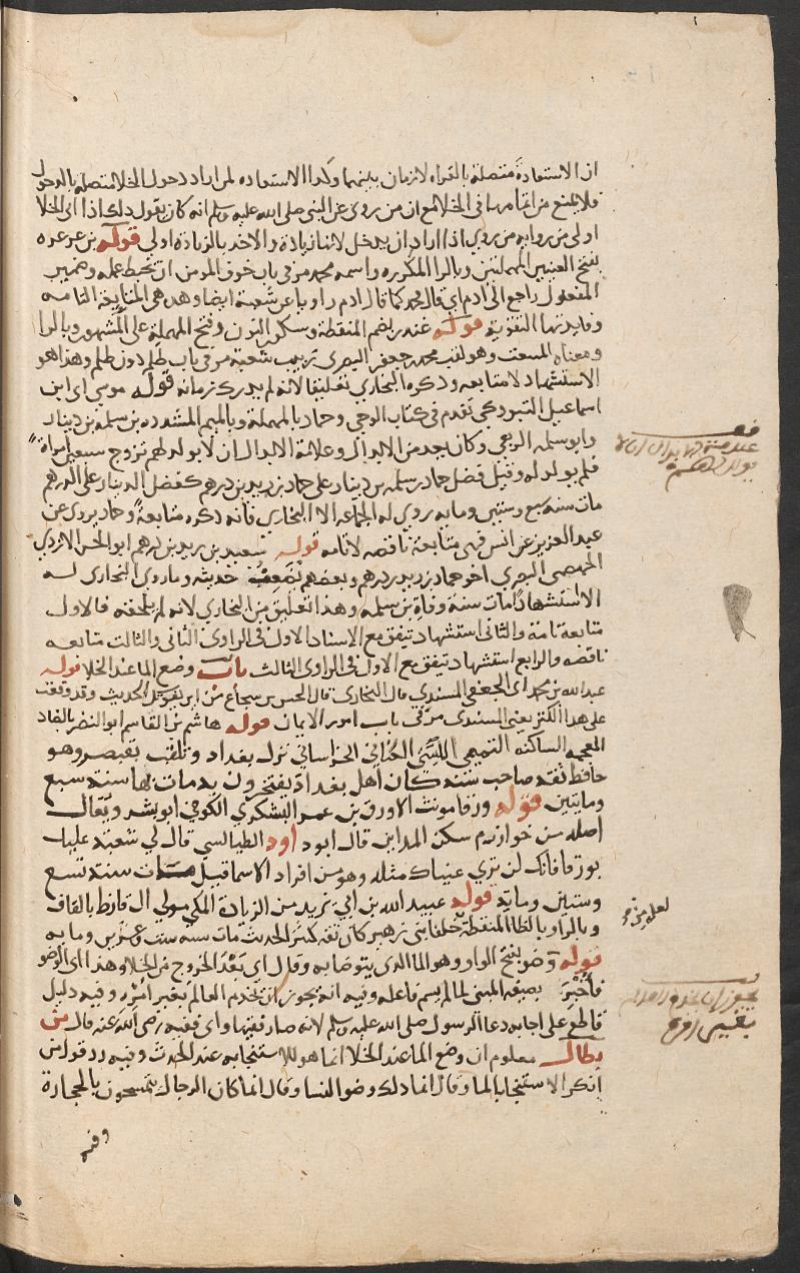 ان الاستعاذة متصلة بالقراه لا زمان بينهما وكذا الاستعاذه لمن اراد دخول الخلا متصلة بالدخول
فلا يمنع من اتمامها في الخلا مع ان من روى عن النبي صلى الله عليه وسلم انه كان يقول ذلك اذا اتى الخلا
اولى من روايه من روى اذا اراد ان يدخل لانها زيادة والاخذ بالزيادة اولى قوله بن عرعره
بفتح العينين المهملتين وبالرا المكرره واسمه محمد مر في باب خوف المومن ان يحبط عمله وضمير
المفعول راجع الى ادم اي قال محمد كما قال ادم راويا عن شعبة ايضا وهذه هي المتابعة التامه
وفايدتها التقوية قوله غندر بضم المنقطة وسكون النون وفتح المهملة على المشهور وبالرا
ومعناه المشغب وهو لقب محمد بن جعفر البصري ربيب شعبة مر في باب ظلم دون ظلم وهذا هو
الاستشهاد لا متابعه وذكره البخاري تعليقا لانه لم يدرك زمانه قوله موسى اي ابن
اسماعيل التبوذكي تقدم في كتاب الوحي وحماد بالمهملة وبالميم المشدده بن سلمة بن دينار
وابو سلمه الربعي وكان يعد من الابدال وعلامة الابدال ان لا يولد لهم تزوج سبعين امراة
فلم يولد له وقيل فضل حماد بن سلمه بن دينار على حماد بن زيد بن درهم كفضل الدينار على الدرهم
مات سنه سبع وستين ومايه روي له الجماعه الا البخاري فانه ذكره متابعة وحماد يروى عن
عبد العزيز عن انس فهي متابعة ناقصه لا تامه قوله سعيد بن زيد بن درهم ابو الحسن الازدي
الجهضمي البصري اخو حماد بن زيد بن درهم وبعضهم يضعف حديثه وما روى البخارى له
الاستشهادا مات سنة وفاة بن سلمه وهذا تعليق من البخاري لانه لم يلحقه فالاول
متابعة تامة والثانى استشهاد يتفق مع الاسناد الاول في الراوى الثاني والثالث متابعه
ناقصه والرابع استشهاد يتفق مع الاول في الراوى الثالث باب وضع الما عند الخلا قوله
عبد الله بن محمد اى الجعفي المسندي قال البخارى قال الحسن بن شجاع من اين يفوتك الحديث وقد وقعت
على هذا الكنز يعنى المسندى مر في باب امور الايمان قوله هاشم بن القاسم ابو النضر بالضاد
المعجمه الساكنه التميمي الليثي الكناني الخراساني نزل بغداد وتلقب بقيصر وهو
حافظ ثقه صاحب سنة كان اهل بغداد يفتخرون به مات بها سنه سبع
ومايتين قوله ورقا مونث الاورق بن عمر اليشكري الكوفي ابو بشر ويقال
اصله من خوارزم سكن المداين قال ابو داود الطيالسي قال لي شعبة عليك
بورقا فانك لن ترى عيناك مثله وهو من افراد الاسما قيل مات سنة تسع
وستين ومايه قوله عبيد الله بن ابي يزيد من الزيادة المكي مولى ال قارظ بالقاف
وبالرا وبالظا المنقطة خلفا بني زهير كان ثقه كثير الحديث مات سنه ست وعشرين ومايه
قوله وَضو بفتح الواو وهو الما الذى يتوضا به وقال اى بعد الخروج من الخلا وهذا اى الوضو
فأُخبِرَ بصيغه المبنى لما لم يسم فاعله وفيه انه يجوز ان يخدم العالم بغير امره وفيه دليل
قاطع على اجابه دعا الرسول صلى الله عليه وسلم لانه صار فقيها واى فقيه رضى الله عنه قال بن
بطال معلوم ان وضع الما عند الخلا انما هو للاستنجا به عند الحدث وفيه رد قول من
انكر الاستنجا بالما وقال انما ذلك وضو النسا وقال انما كان الرجال يتمسحون بالحجارة
وفيه
لعله بني
بغير امره